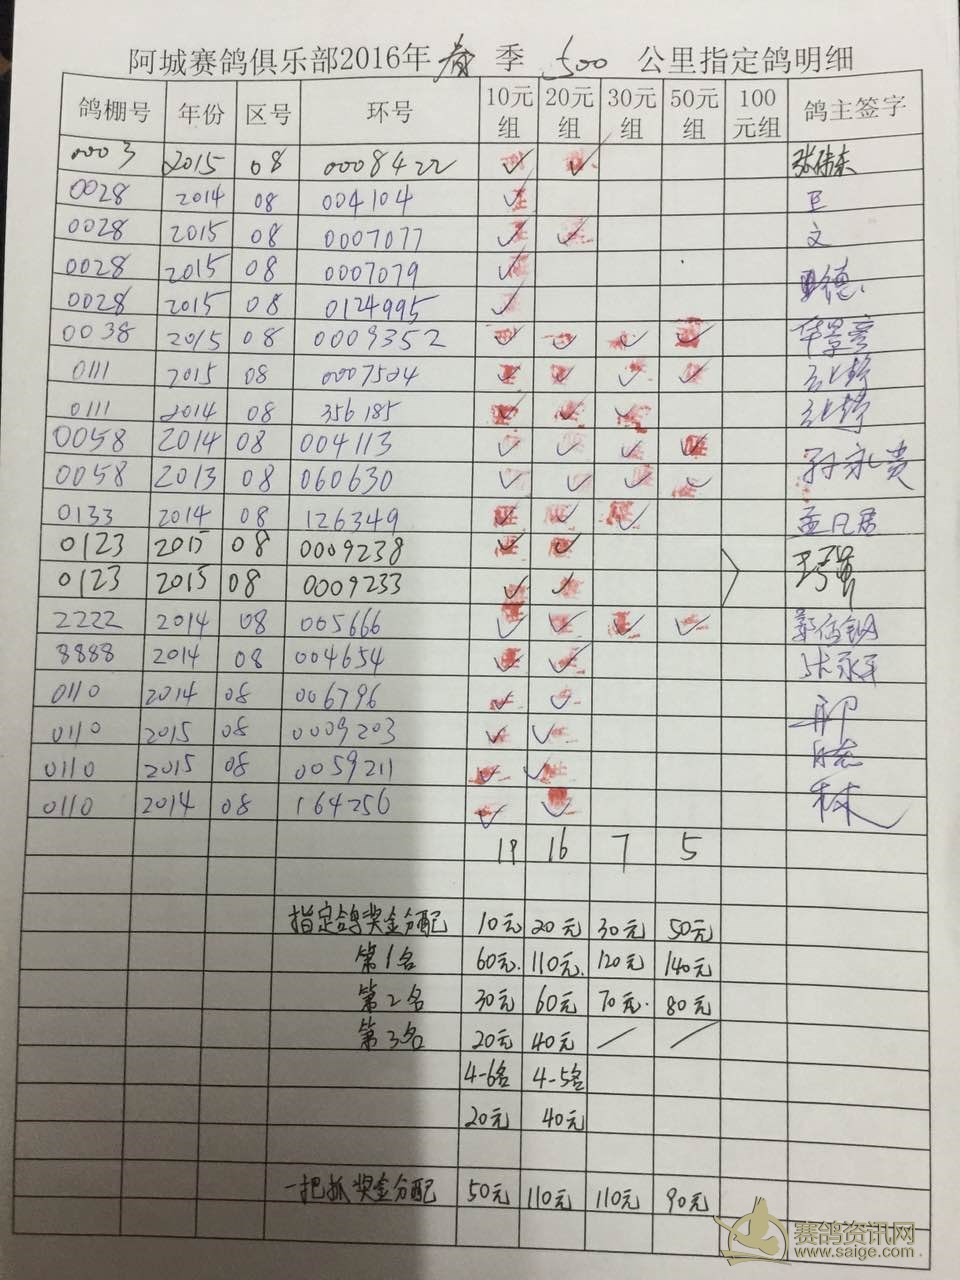 阿城赛鸽俱乐部2016年春季 500 公里指定鸽明细
鸽棚号 年份 区号 环号 10元组 20元组 30元组 50元组 100元组 鸽主签字
0003 2015 08 0008422 ✓ ✓
0028 2014 08 004104 ✓
0028 2015 08 0007077 ✓ ✓ 文
0028 2015 08 0007079 ✓ 德
0028 2015 08 0124995 ✓
0038 2015 08 0009352 ✓ ✓ ✓ ✓ 华景彦
0111 2015 08 0007524 ✓ ✓ ✓ ✓
0111 2014 08 356185 ✓ ✓ ✓
0058 2014 08 004113 ✓ ✓ ✓ ✓ 孙永贵
0058 2013 08 060630 ✓ ✓ ✓ ✓
0133 2014 08 126349 ✓ ✓ ✓ 孟凡君
0123 2015 08 0009238 ✓ ✓
0123 2015 08 0009233 ✓ ✓
2222 2014 08 005666 ✓ ✓ ✓ ✓
8888 2014 08 004654 ✓ ✓ 张永平
0110 2014 08 006796 ✓ ✓ 郭
0110 2015 08 0009203 ✓ ✓
0110 2015 08 0059211 ✓ ✓ 晓
0110 2014 08 164256 ✓ ✓ 林
19 16 7 5
指定鸽奖金分配 10元 20元 30元 50元
第1名 60元 110元 120元 140元
第2名 30元 60元 70元 80元
第3名 20元 40元 / /
4-6名 4-5名
20元 40元
一把抓奖金分配 50元 110元 110元 90元
赛鸽资讯网
www.saige.com